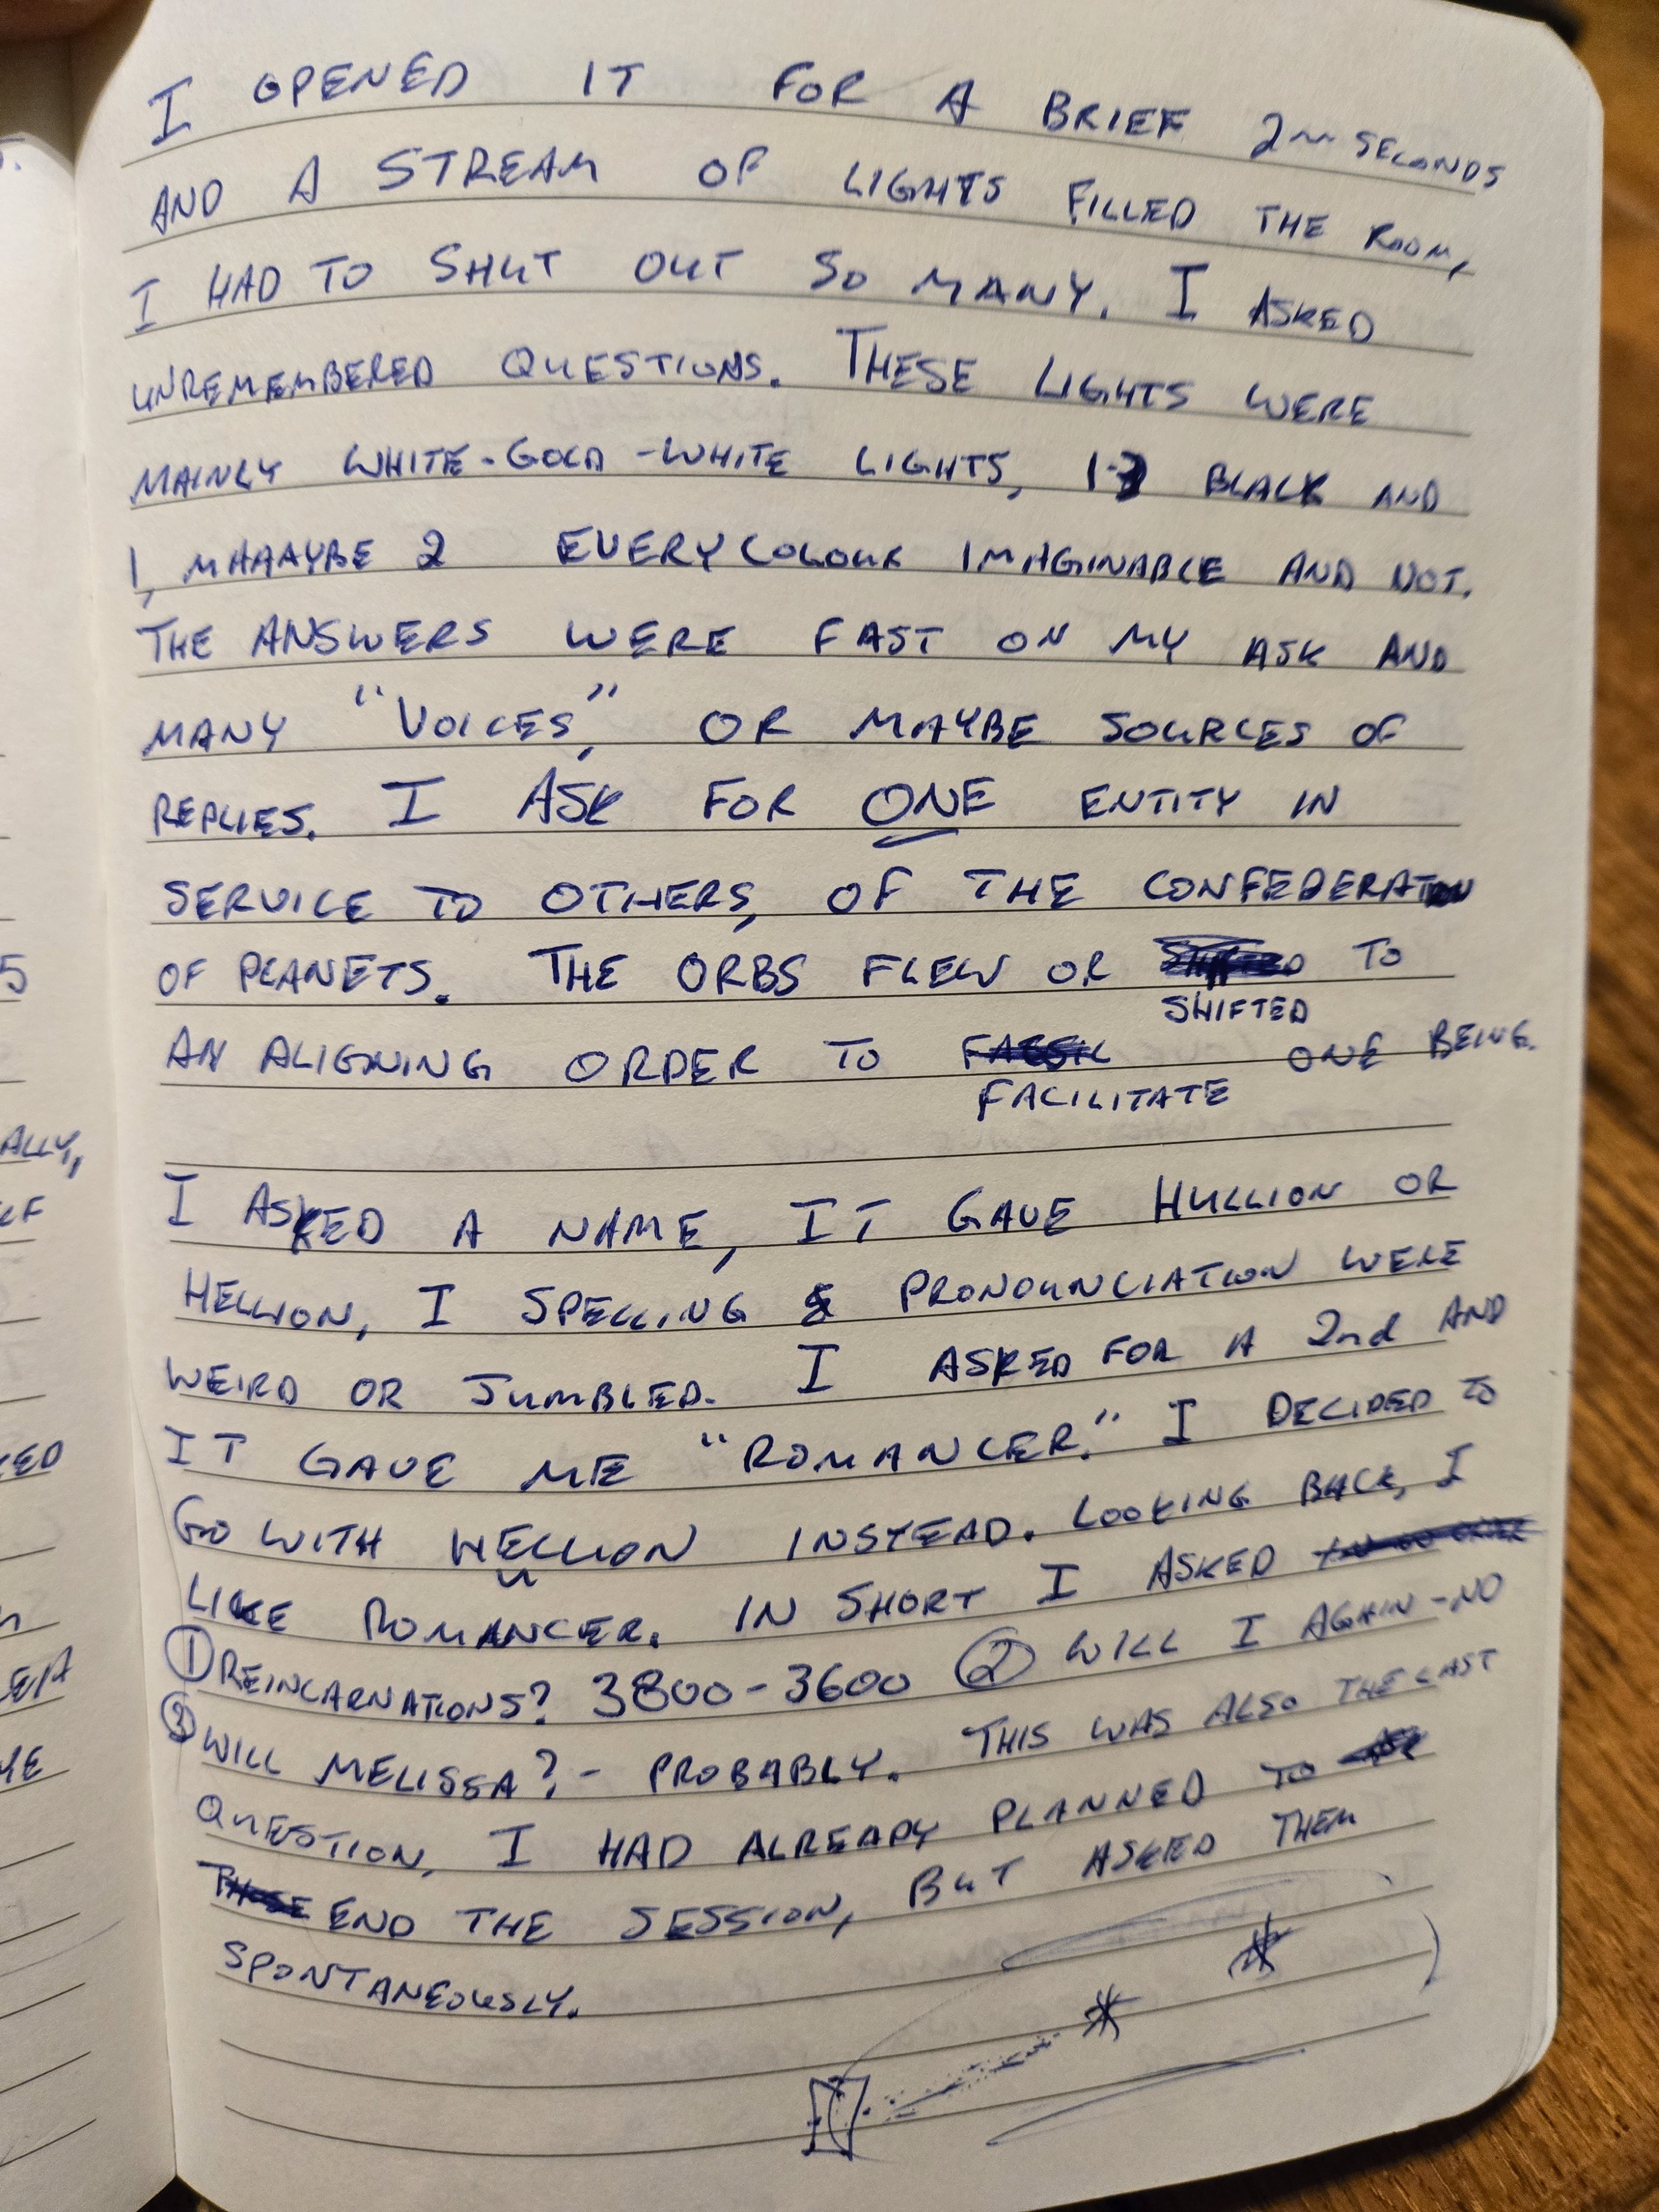 I OPENED IT FOR A BRIEF 2~ SECONDS
AND A STREAM OF LIGHTS FILLED THE ROOM,
I HAD TO SHUT OUT SO MANY. I ASKED
UNREMEMBERED QUESTIONS. THESE LIGHTS WERE
MAINLY WHITE-GOLD-WHITE LIGHTS, 1-3 BLACK AND
1, MHAAYBE 2 EVERY COLOUR IMAGINABLE AND NOT.
THE ANSWERS WERE FAST ON MY ASK AND
MANY "VOICES", OR MAYBE SOURCES OF
REPLIES. I ASK FOR ONE ENTITY IN
SERVICE TO OTHERS, OF THE CONFEDERATION
OF PLANETS. THE ORBS FLEW OR TO
SHIFTED
AN ALIGNING ORDER TO ONE BEING.
FACILITATE
I ASKED A NAME, IT GAVE HULLION OR
HELLION, I SPELLING & PRONOUNCIATION WERE
WEIRD OR JUMBLED. I ASKED FOR A 2nd AND
IT GAVE ME "ROMANCER." I DECIDED TO
GO WITH HELLION INSTEAD. LOOKING BACK, I
U
LIKE ROMANCER. IN SHORT I ASKED
① REINCARNATIONS? 3800-3600 ② WILL I AGAIN -NO
③ WILL MELISSA? - PROBABLY. THIS WAS ALSO THE LAST
QUESTION, I HAD ALREADY PLANNED TO
END THE SESSION, BUT ASKED THEM
SPONTANEOUSLY.
5
ALLY,